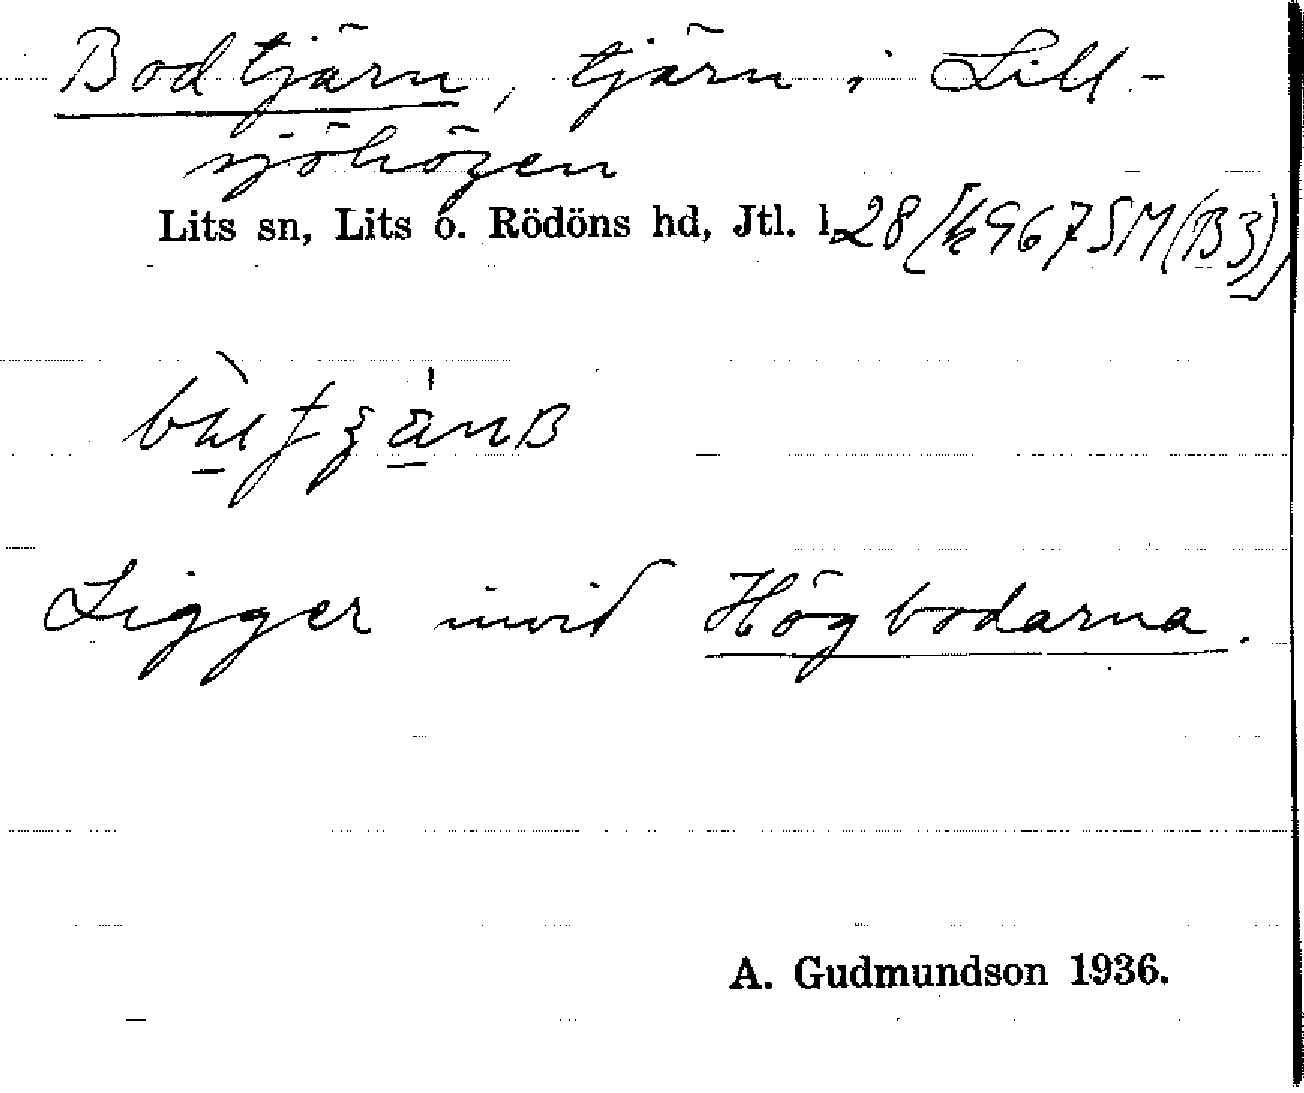 Bodtjärn, tjärn i Lill-
sjöhögen
Lits sn, Lits o. Rödöns hd, Jtl. l. 28
Ligger invid Högbodarna.
A. Gudmundson 1936.